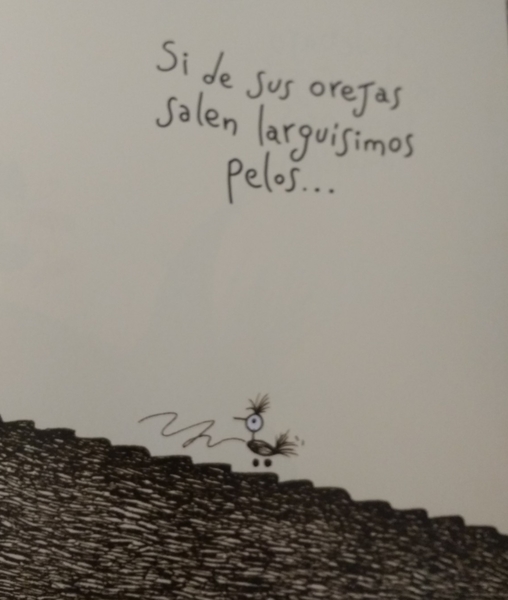 Si de sus orejas
salen larguisimos
pelos...